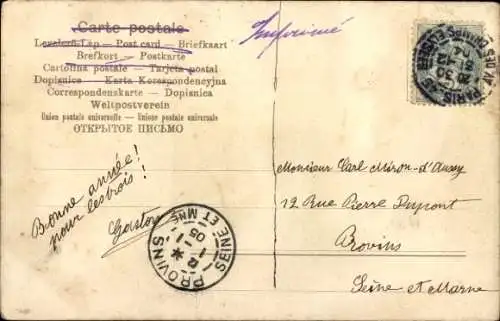 Carte postale
Levelezö-Lap – Post card – Briefkaart
Brefkort – Postkarte
Cartolina postale – Tarjeta postal
Dopisnice – Karta Korespondencyjna
Correspondenskarte – Dopisnica
Weltpostverein
Union postale universelle – Unione postale universale
ОТКРЫТОЕ ПИСЬМО
Imprimé
PARIS
20 30
31-12
04
Bonne année!
pour les trois!
Gaston
PROVINS
SEINE ET MNE
1-1
05
Monsieur Carl Miron-d'Aussy
12 Rue Pierre Dupont
Provins
Seine et Marne